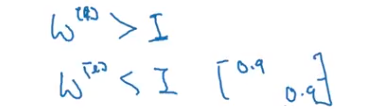 W^[l] > I
W^[l] < I [0.9 0.9]